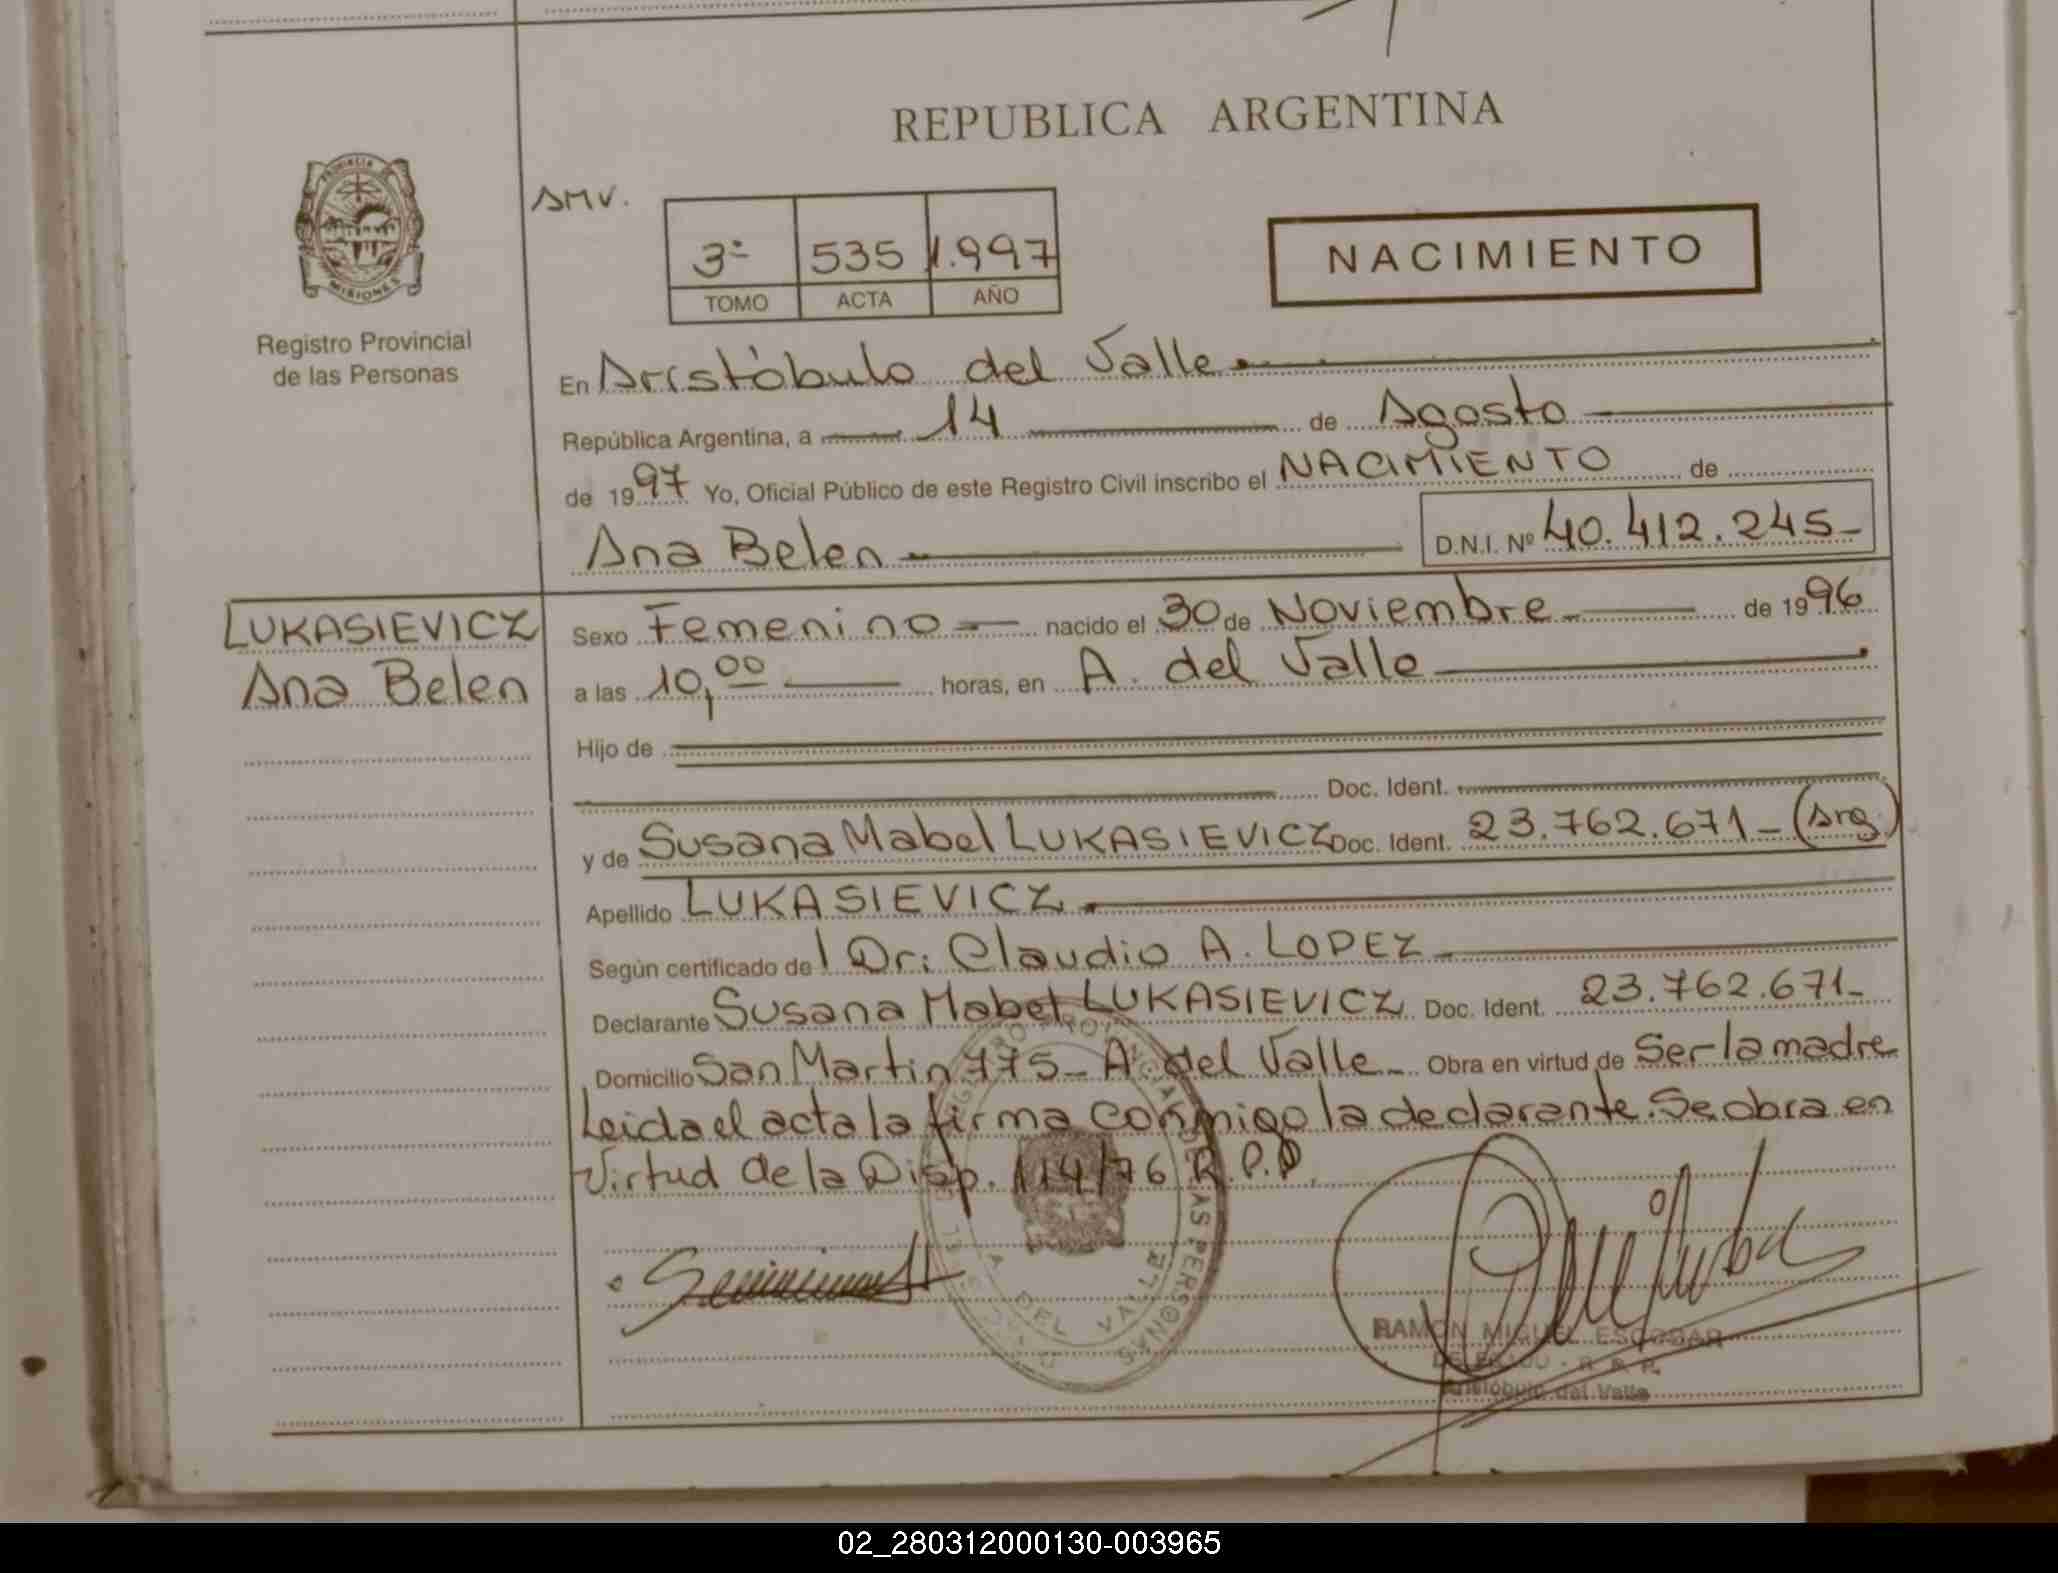 REPUBLICA ARGENTINA
PROVINCIA DE
MISIONES
Registro Provincial
de las Personas
AMV.
3º 535 1.997
TOMO ACTA AÑO
NACIMIENTO
En Aristóbulo del Valle
República Argentina, a 14 de Agosto
de 1997 Yo, Oficial Público de este Registro Civil inscribo el NACIMIENTO de
Ana Belen D.N.I. Nº 40.412.245-
LUKASIEVICZ
Ana Belen
Sexo Femenino nacido el 30 de Noviembre de 1996
a las 10,00 horas, en A. del Valle
Hijo de
Doc. Ident.
y de Susana Mabel LUKASIEVICZ Doc. Ident. 23.762.671-(Arg)
Apellido LUKASIEVICZ
Según certificado del Dr: Claudio A. LOPEZ
Declarante Susana Mabel LUKASIEVICZ Doc. Ident. 23.762.671-
Domicilio San Martin 775- A. del Valle- Obra en virtud de Ser la madre
Leida el acta la firma conmigo la declarante. Se obra en
Virtud de la Disp. 114/76 R.P.P.
REGISTRO PROVINCIAL DE LAS PERSONAS
A. DEL VALLE
RAMON MIGUEL ESCOBAR
DELEGADO - R. P. P.
Aristóbulo del Valle
02_280312000130-003965